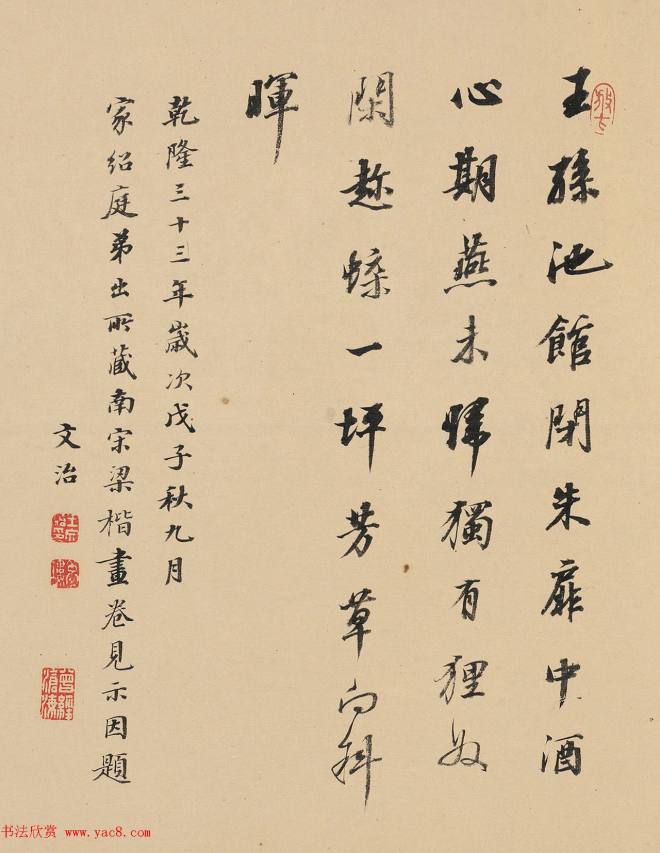 王孫池館閉朱扉中酒
心期燕未歸獨有狸奴
閑趂蝶一坪芳草向斜
暉
乾隆三十三年歲次戊子秋九月
家紹庭弟出所藏南宋梁楷畫卷見示因題
文治
曾經滄海
书法欣赏 www.yac8.com